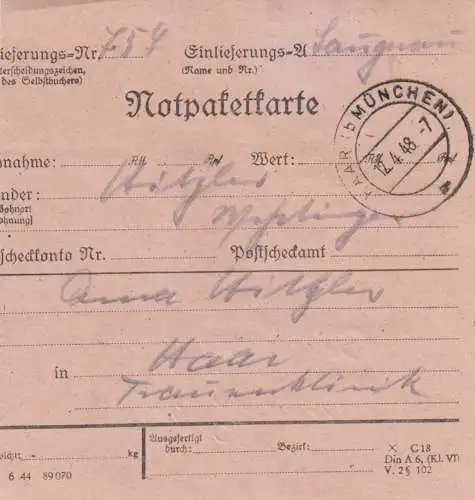 lieferungs-Nr. 757 Einlieferungs-A
terscheidungszeichen, (Name und Nr.)
des Selbstbuchers)
Notpaketkarte
HAAR (b MÜNCHEN)
12.4.48.-7
a
nahme: RM Rpf Wert: RM Rpf
nder: Hitzler
Wohnort
ohnung)
scheckkonto Nr. Postscheckamt
Anna Hitzler
in Haar
Frauenklinik
wicht: kg Ausgefertigt durch: Bezirk: × C 18
6 44 89 070 Din A 6, (Kl. VI)
V. 2 § 102